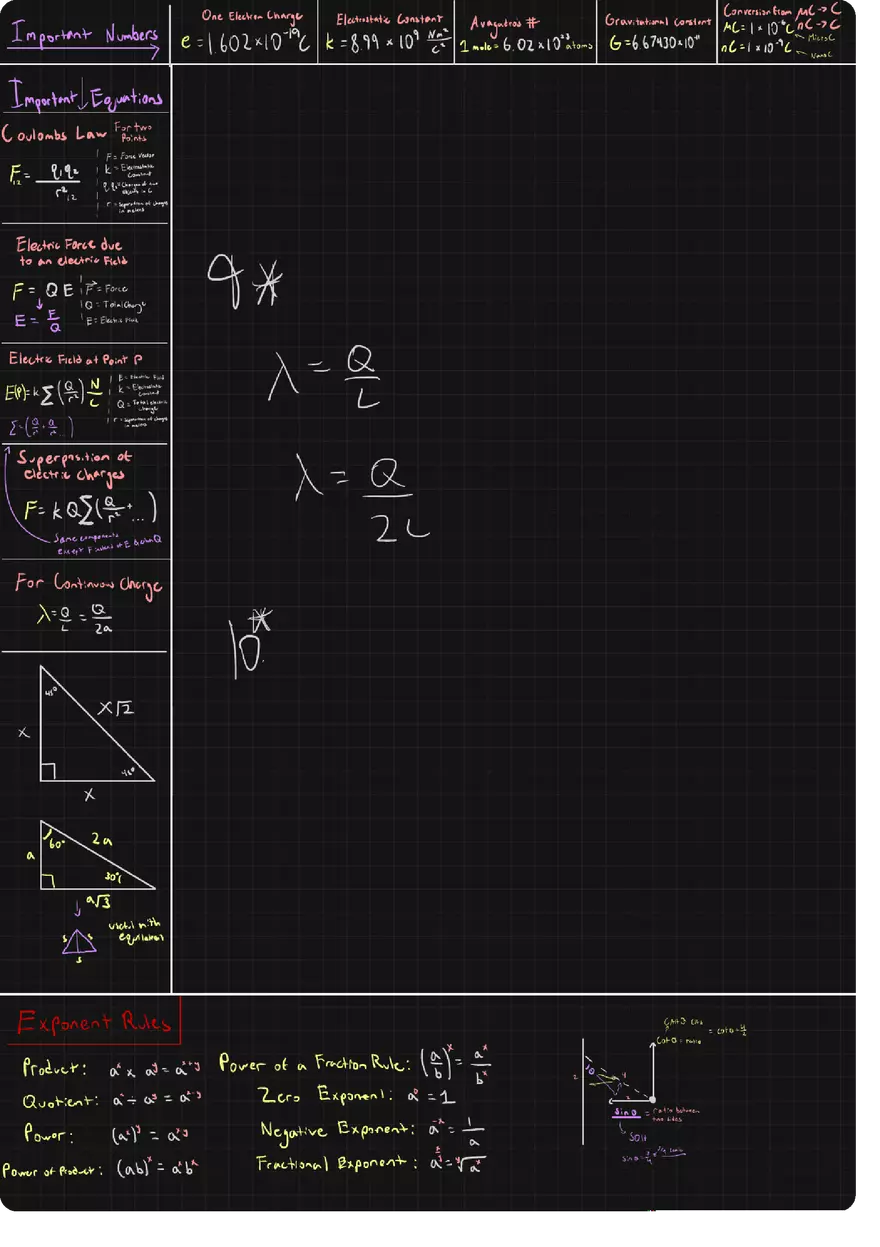 Important Numbers
One Electron Charge
e = 1.602 x 10^-19 C
Electrostatic Constant
k = 8.99 x 10^9 Nm^2/C^2
Avagatros #
1 mole = 6.02 x 10^23 atoms
Gravitational Constant
G = 6.67430 x 10^-11
Conversion from μC → C
nC → C
μC = 1 x 10^-6 C
MicroC
nC = 1 x 10^-9 C
NanoC
Important ↓ Equations
Coulombs Law For two Points
F₁₂ = q₁q₂/r²₁₂
F = Force Vector
k = Electrostatic Constant
r = Separation of charges in meters
Electric Force due
to an electric Field
F = QE
F = Force
Q = Total Charge
E = Electric Field
E = F/Q
Electric Field at Point P
E(P) = k Σ (Q/r²) N/C
E = Electric Field
k = Electrostatic Constant
Q = Total electric charge
r = Separation of charges in meters
Superposition of
electric charges
F = k Q Σ (Q/r² + ...)
Same components
For Continuous Charge
λ = Q/L = Q/2a
45°
x
x√2
45°
x
60°
2a
a
30°
a√3
useful with
equilateral
s s
s
9*
λ = Q/L
λ = Q/2L
10*
Exponent Rules
Product: a^x x a^y = a^x+y
Quotient: a^x ÷ a^y = a^x-y
Power: (a^x)^y = a^xy
Power of Product: (ab)^x = a^x b^x
Power of a Fraction Rule: (a/b)^x = a^x/b^x
Zero Exponent: a^0 = 1
Negative Exponent: a^-x = 1/a
Fractional Exponent: a^x/y = y√a^x
cotθ = ratio
sin θ = ratio between
two sides
SOH